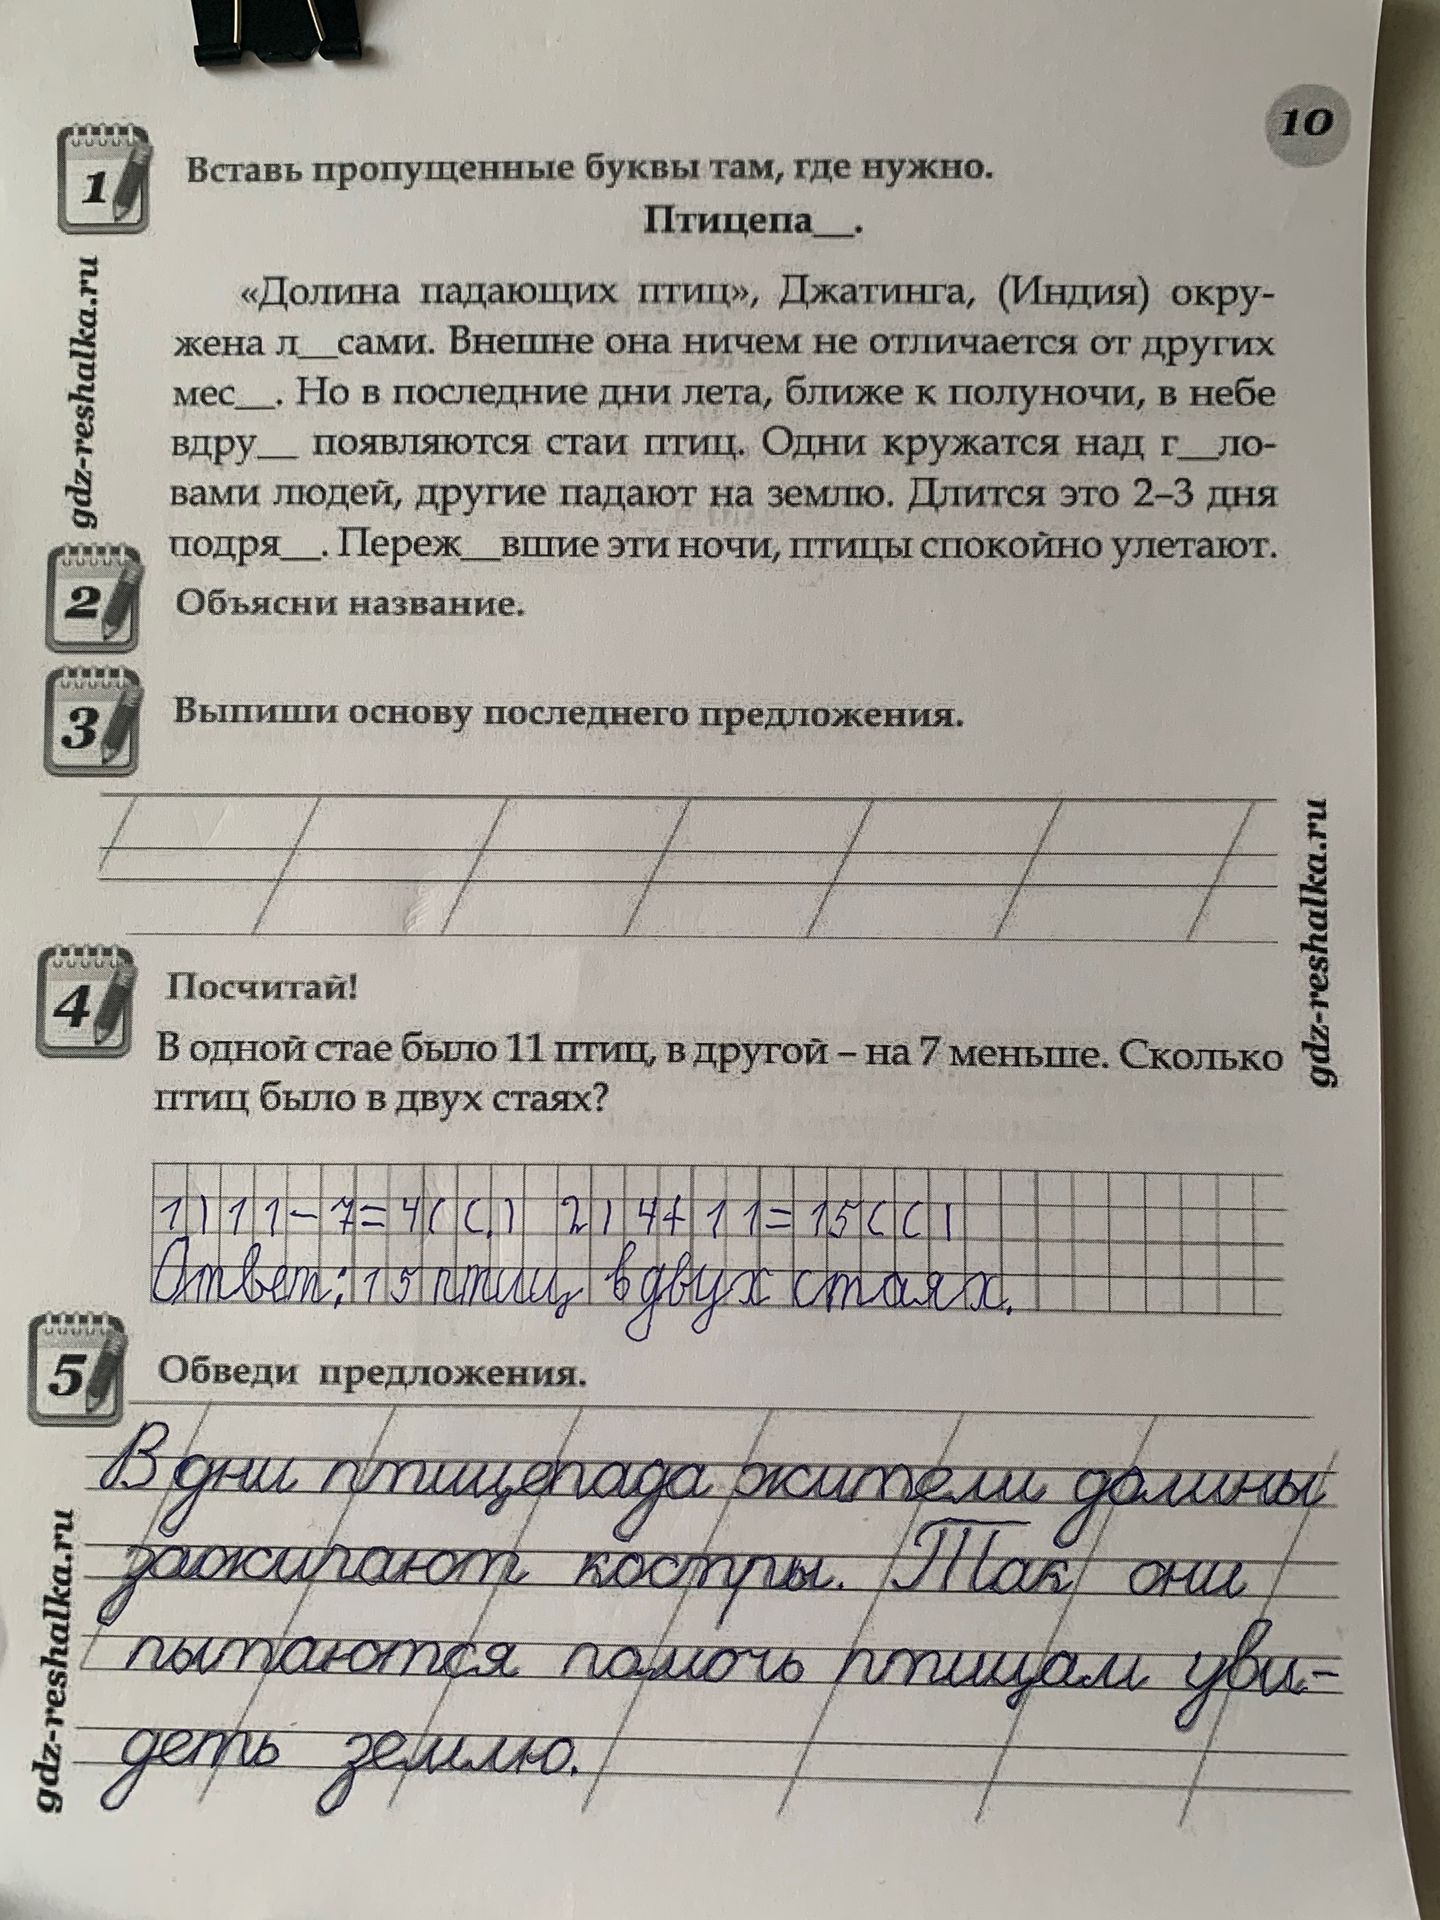 10
1
Вставь пропущенные буквы там, где нужно.
Птицепа__.
«Долина падающих птиц», Джатинга, (Индия) окру-
жена л__сами. Внешне она ничем не отличается от других
мес__. Но в последние дни лета, ближе к полуночи, в небе
вдру__ появляются стаи птиц. Одни кружатся над г__ло-
вами людей, другие падают на землю. Длится это 2–3 дня
подря__. Переж__вшие эти ночи, птицы спокойно улетают.
gdz-reshalka.ru
2
Объясни название.
3
Выпиши основу последнего предложения.
gdz-reshalka.ru
4
Посчитай!
В одной стае было 11 птиц, в другой – на 7 меньше. Сколько
птиц было в двух стаях?
1) 11-7=4(с.) 2) 4+11=15(с)
Ответ: 15 птиц в двух стаях.
5
Обведи предложения.
В дни птицепада жители долины
зажигают костры. Так они
пытаются помочь птицам уви-
деть землю.
gdz-reshalka.ru